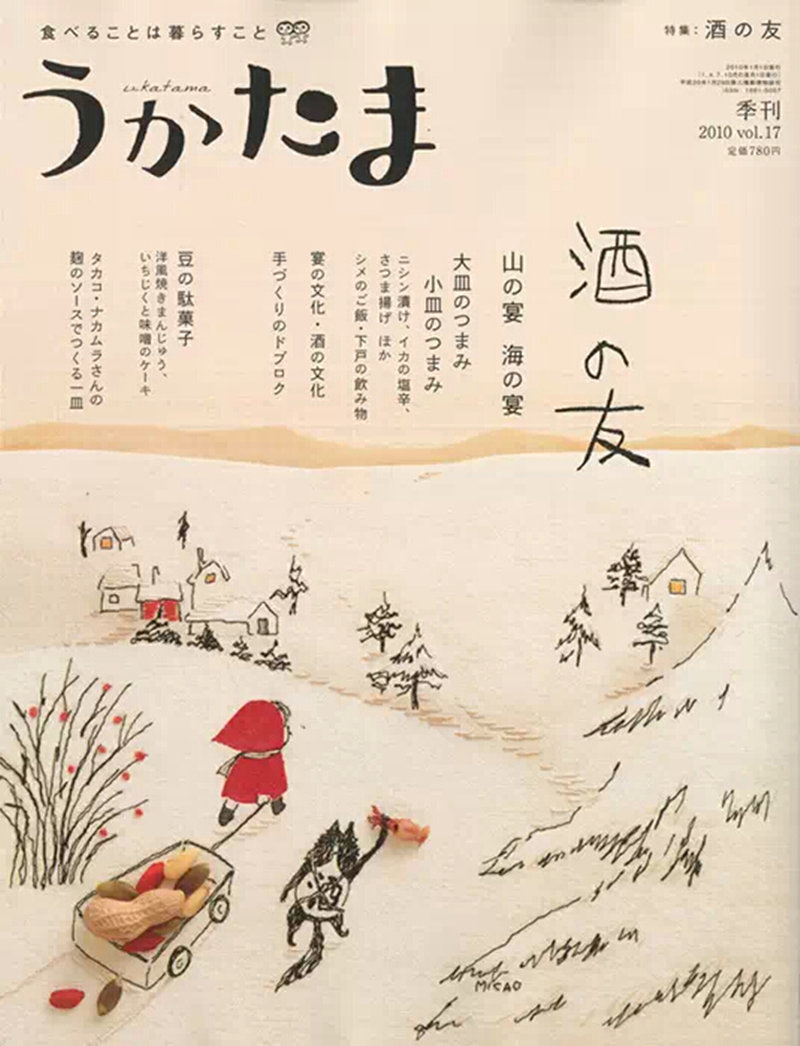 食べることは暮らすこと
うかたま
ukatama
特集：酒の友
2010年1月1日発行
季刊
2010 vol.17
定価780円
酒の友
山の宴 海の宴
大皿のつまみ
小皿のつまみ
ニシン漬け、イカの塩辛、
さつま揚げ ほか
シメのご飯・下戸の飲み物
宴の文化・酒の文化
手づくりのドブロク
豆の駄菓子
洋風焼きまんじゅう、
いちじくと味噌のケーキ
タカコ・ナカムラさんの
麹のソースでつくる一皿
酒
MICAO